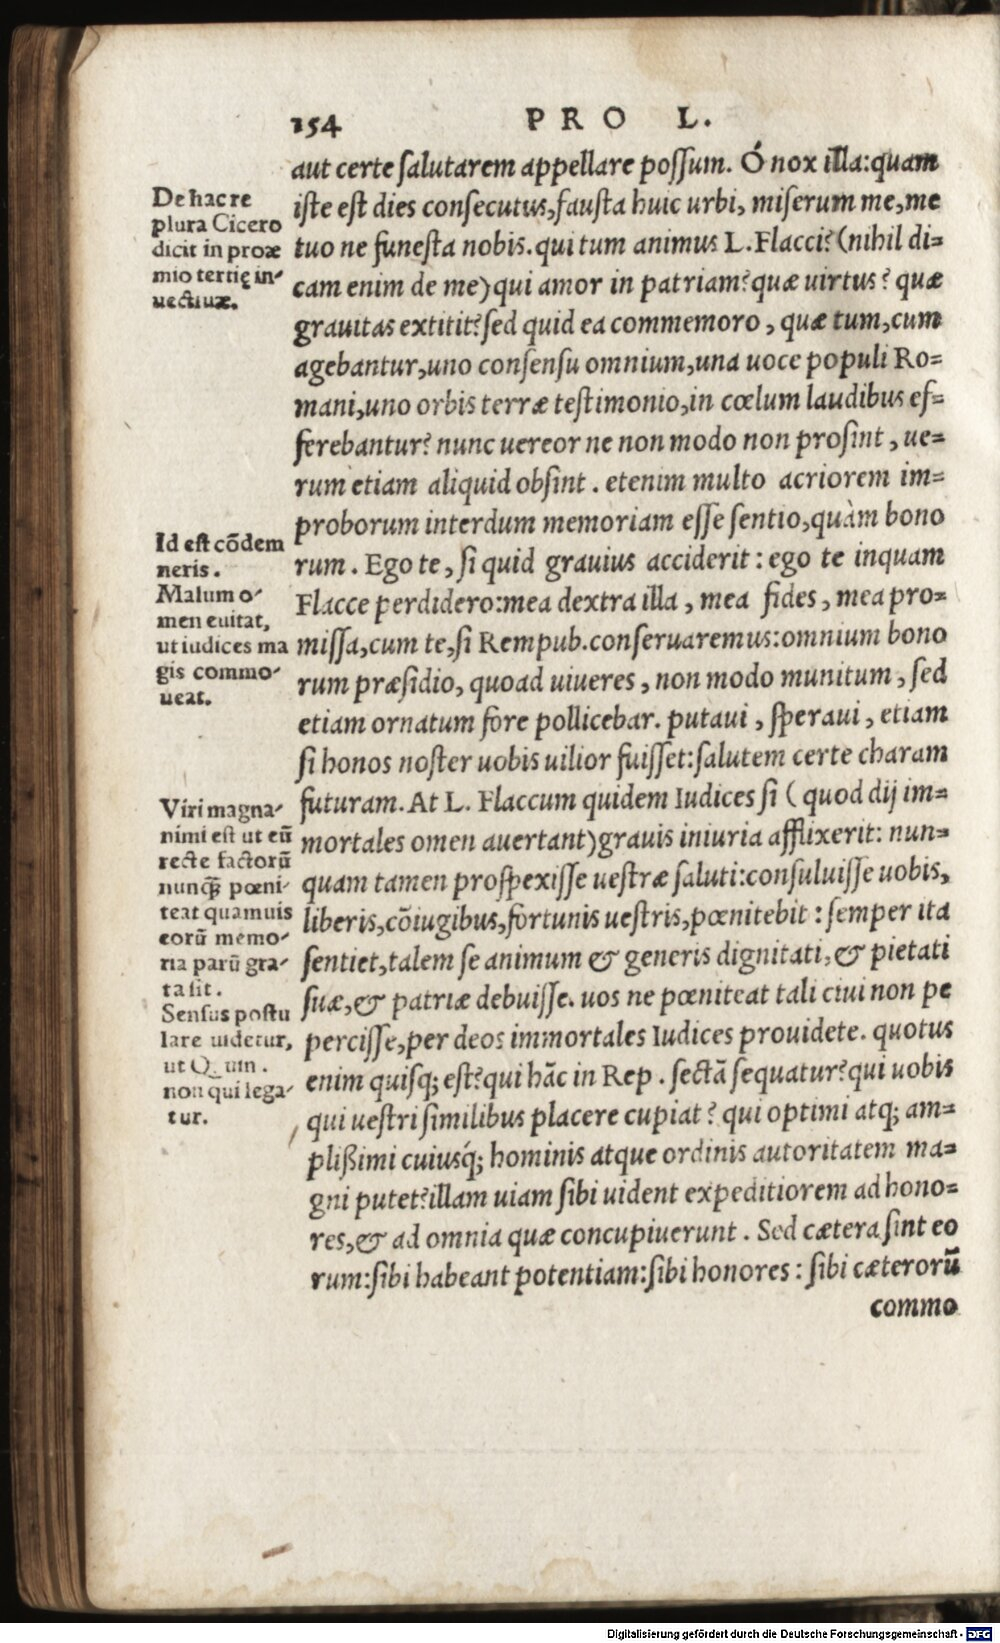 154 PRO L.
aut certe ſalutarem appellare poſſum. Ó nox illa:quam
iſte eſt dies conſecutus,fauſta huic urbi, miſerum me,me
tuo ne funeſta nobis.qui tum animus L.Flacci?(nihil di=
cam enim de me)qui amor in patriam?quæ uirtus? quæ
grauitas extitit?ſed quid ea commemoro, quæ tum,cum
agebantur,uno conſenſu omnium,una uoce populi Ro=
mani,uno orbis terræ teſtimonio,in cœlum laudibus ef=
ferebantur? nunc uereor ne non modo non proſint, ue=
rum etiam aliquid obſint. etenim multo acriorem im=
proborum interdum memoriam eſſe ſentio,quàm bono
rum. Ego te, ſi quid grauius acciderit: ego te inquam
Flacce perdidero:mea dextra illa, mea fides, mea pro=
miſſa,cum te,ſi Rempub.conſeruaremus:omnium bono
rum præſidio, quoad uiueres, non modo munitum, ſed
etiam ornatum fore pollicebar. putaui, ſperaui, etiam
ſi honos noſter uobis uilior fuiſſet:ſalutem certe charam
futuram. At L. Flaccum quidem Iudices ſi (quod dij im=
mortales omen auertant)grauis iniuria afflixerit: nun=
quam tamen proſpexiſſe ueſtræ ſaluti:conſuluiſſe uobis,
liberis,cõiugibus,fortunis ueſtris,pœnitebit: ſemper ita
ſentiet,talem ſe animum & generis dignitati,& pietati
ſuæ,& patriæ debuiſſe. uos ne pœniteat tali ciui non pe
perciſſe,per deos immortales Iudices prouidete. quotus
enim quiſq; eſt?qui hãc in Rep. ſectã ſequatur?qui uobis
qui ueſtri ſimilibus placere cupiat? qui optimi atq; am=
plißimi cuiuſq́; hominis atque ordinis autoritatem ma=
gni putet?illam uiam ſibi uident expeditiorem ad hono=
res,& ad omnia quæ concupiuerunt. Sed cætera ſint eo
rum:ſibi habeant potentiam:ſibi honores: ſibi cæterorũ
commo
De hac re
plura Cicero
dicit in proæ
mio tertię in-
uectiuæ.
Id eſt cõdem
neris.
Malum o-
men euitat,
ut iudices ma
gis commo-
ueat.
Viri magna-
nimi eſt ut eũ
recte factorũ
nunq̃ pœni-
teat quamuis
eorũ memo-
ria parũ gra-
ta ſit.
Senſus poſtu
lare uidetur,
ut Q uin.
non qui lega-
tur.
Digitalisierung gefördert durch die Deutsche Forschungsgemeinschaft - DFG